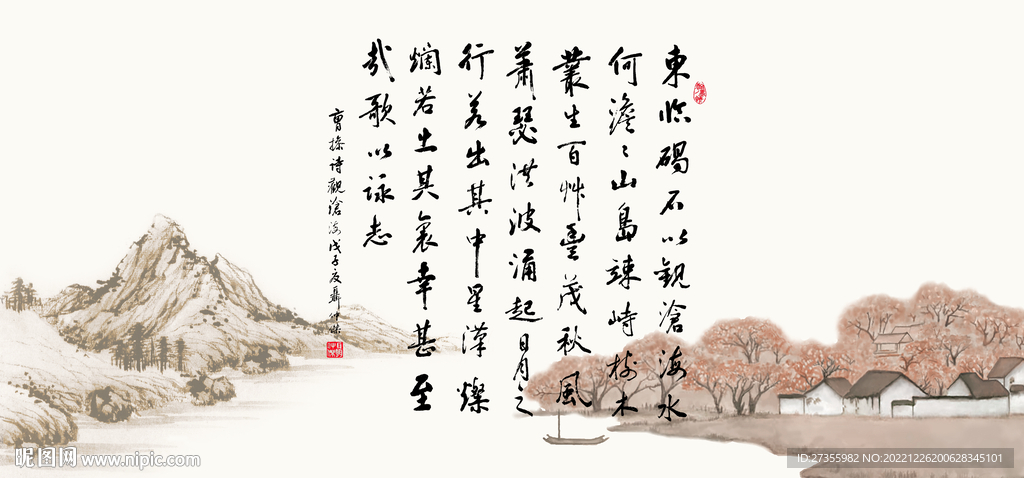 東臨碣石以觀滄海水
何澹〻山島竦峙樹木
叢生百艸豐茂秋風
蕭瑟洪波涌起日月之
行若出其中星漢燦
爛若出其裏幸甚至
哉歌以詠志
曹操诗觀滄海戊子夏聶仲
昵图网 www.nipic.com
ID:27355982 NO:20221226200628345101